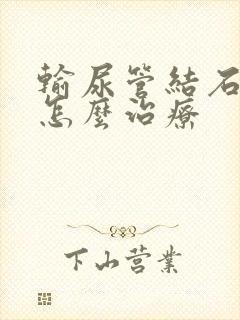 輸尿管結石
怎麼治療
下山营業